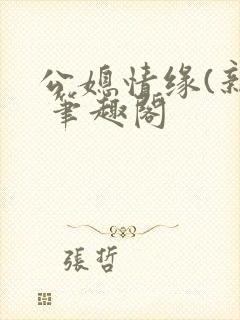 公媳情缘(新
笔趣阁
張哲